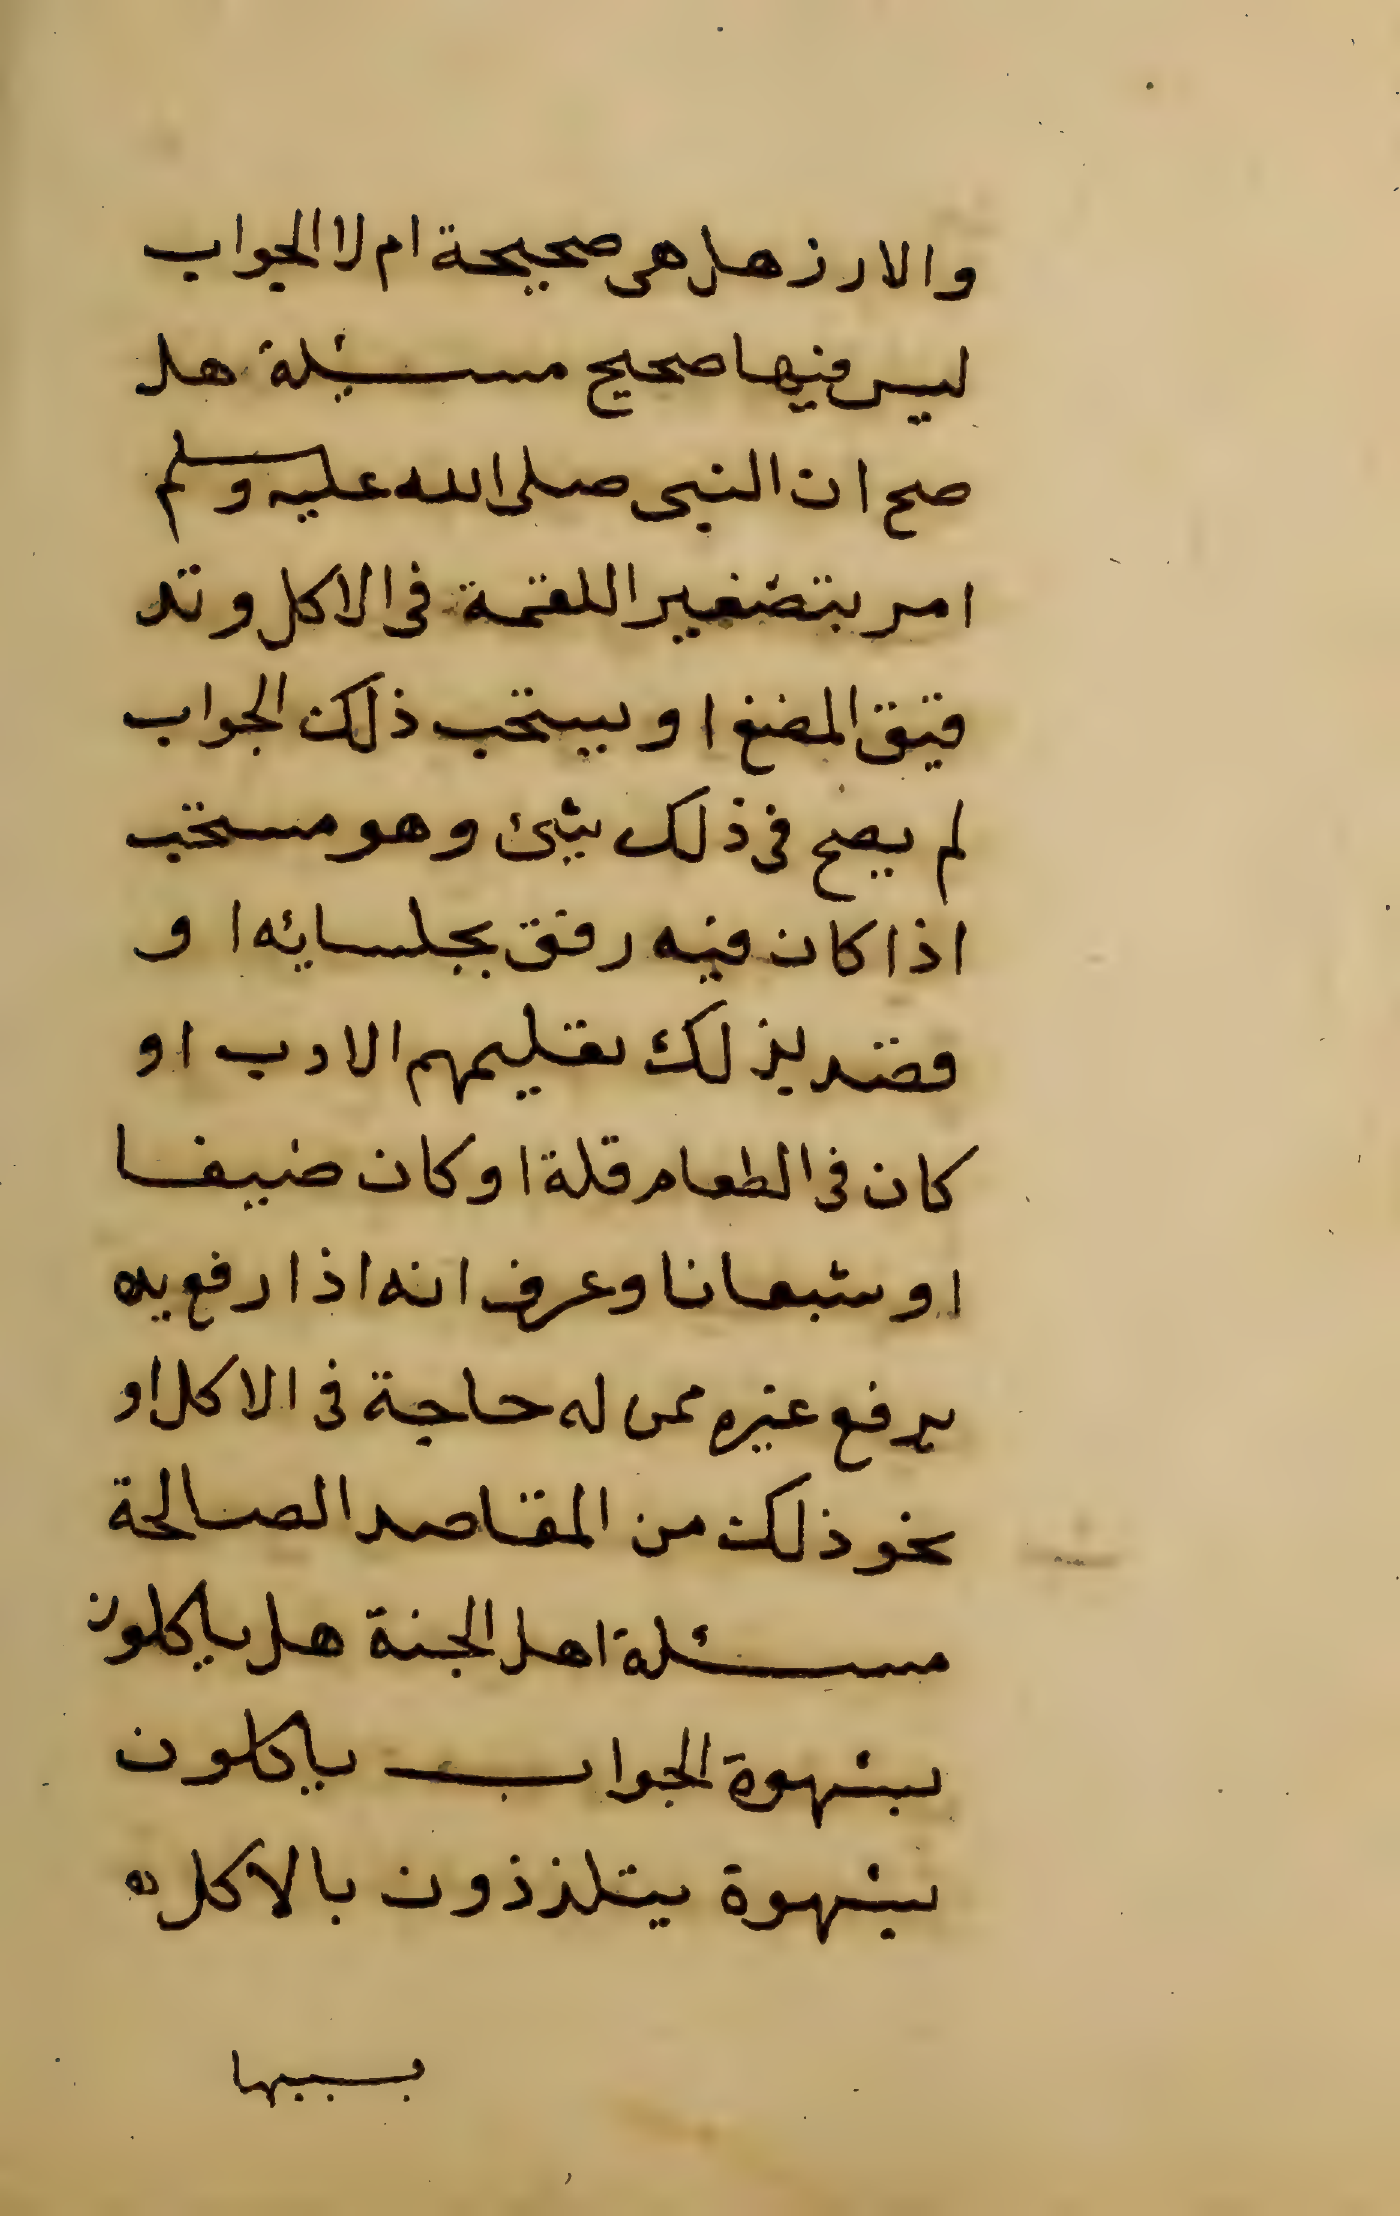 والارز هل هى صحيحة ام لا الجواب
ليس فيها صحيح مسئلة هل
صح ان النبى صلى الله عليه وسلم
امر بتصغير اللقمة فى الاكل وتد
قيق المضغ او يستحب ذلك الجواب
لم يصح فى ذلك شئ وهو مستحب
اذا كان فيه رفق بجلسائه او
قصد بذلك تعليمهم الادب او
كان فى الطعام قلة او كان ضيفا
او شبعانا وعرف انه اذا رفع يده
يرفع غيره ممن له حاجة فى الاكل او
نحو ذلك من المقاصد الصالحة
مسئلة اهل الجنة هل ياكلون
بشهوة الجواب ياكلون
بشهوة يتلذذون بالاكل
بسببها